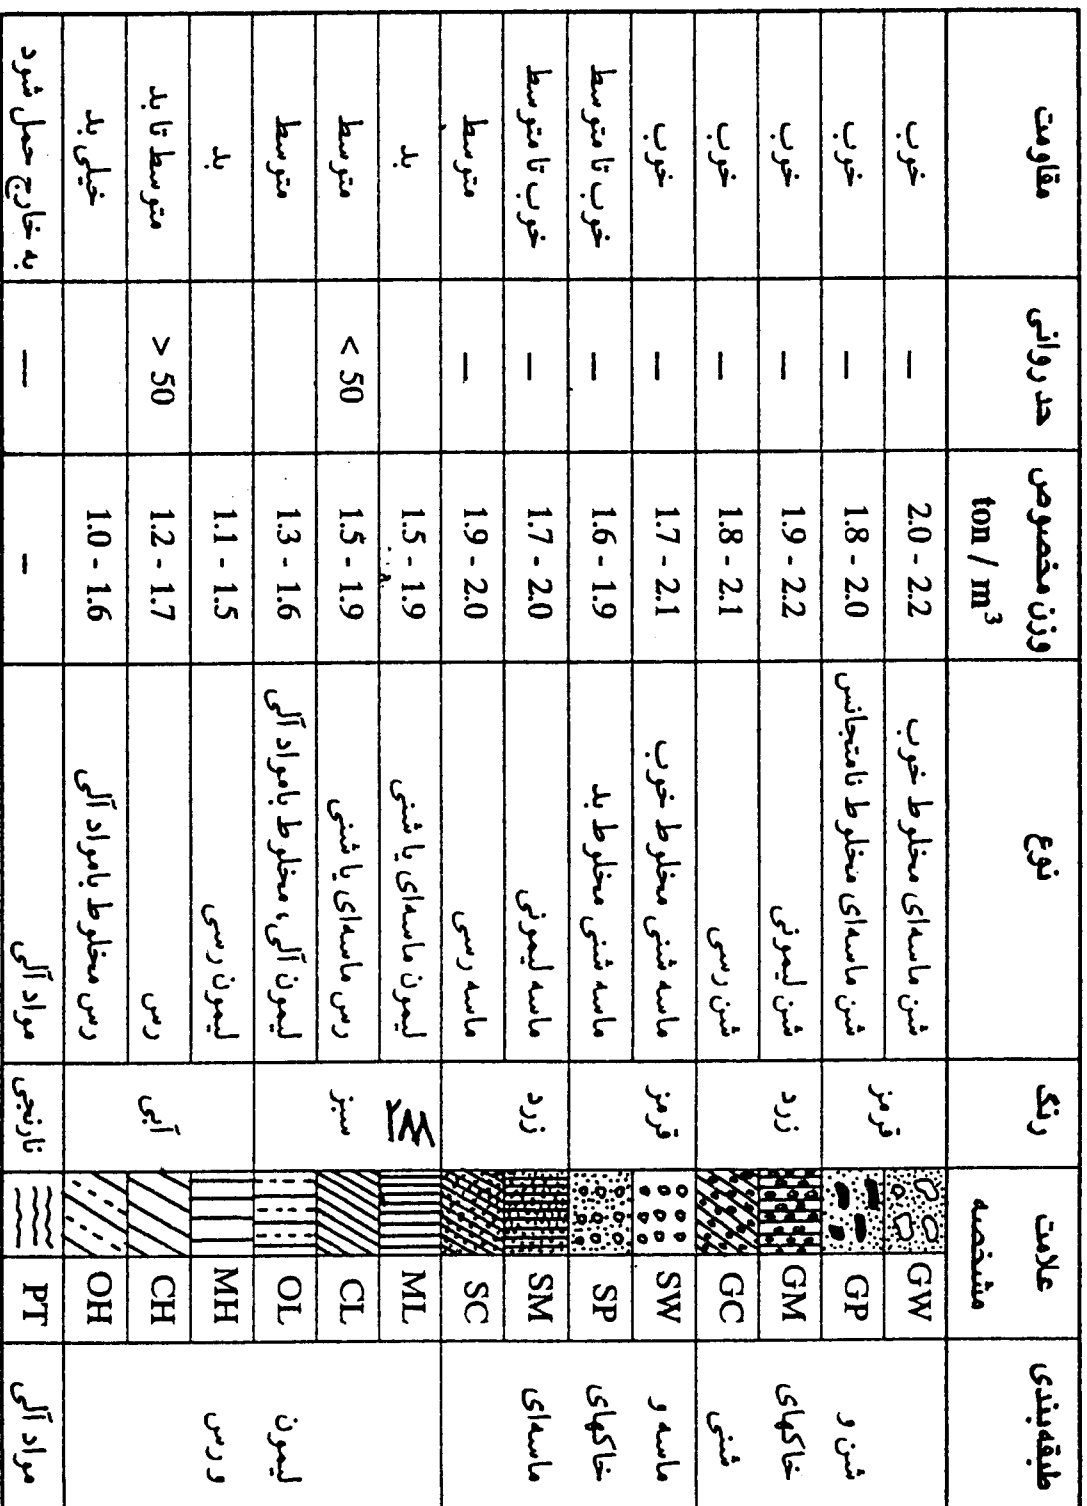 طبقه‌بندی علامت مشخصه رنگ نوع وزن مخصوص ton / m³ حد روانی مقاومت
GW شن ماسه‌ای مخلوط خوب 2.0 - 2.2 — خوب
شن و GP قرمز شن ماسه‌ای مخلوط نامتجانس 1.8 - 2.0 — خوب
خاکهای GM زرد شن لیمونی 1.9 - 2.2 — خوب
شنی GC شن رسی 1.8 - 2.1 — خوب
ماسه و SW قرمز ماسه شنی مخلوط خوب 1.7 - 2.1 — خوب
خاکهای SP ماسه شنی مخلوط بد 1.6 - 1.9 — خوب تا متوسط
ماسه‌ای SM زرد ماسه لیمونی 1.7 - 2.0 — خوب تا متوسط
SC ماسه رسی 1.9 - 2.0 — متوسط
ML لیمون ماسه‌ای یا شنی 1.5 - 1.9 بد
CL سبز رس ماسه‌ای یا شنی 1.5 - 1.9 < 50 متوسط
لیمون OL لیمون آلی، مخلوط بامواد آلی 1.3 - 1.6 متوسط
و رس MH لیمون رسی 1.1 - 1.5 بد
CH آبی رس 1.2 - 1.7 > 50 متوسط تا بد
OH رس مخلوط بامواد آلی 1.0 - 1.6 خیلی بد
مواد آلی PT نارنجی مواد آلی - — به خارج حمل شود